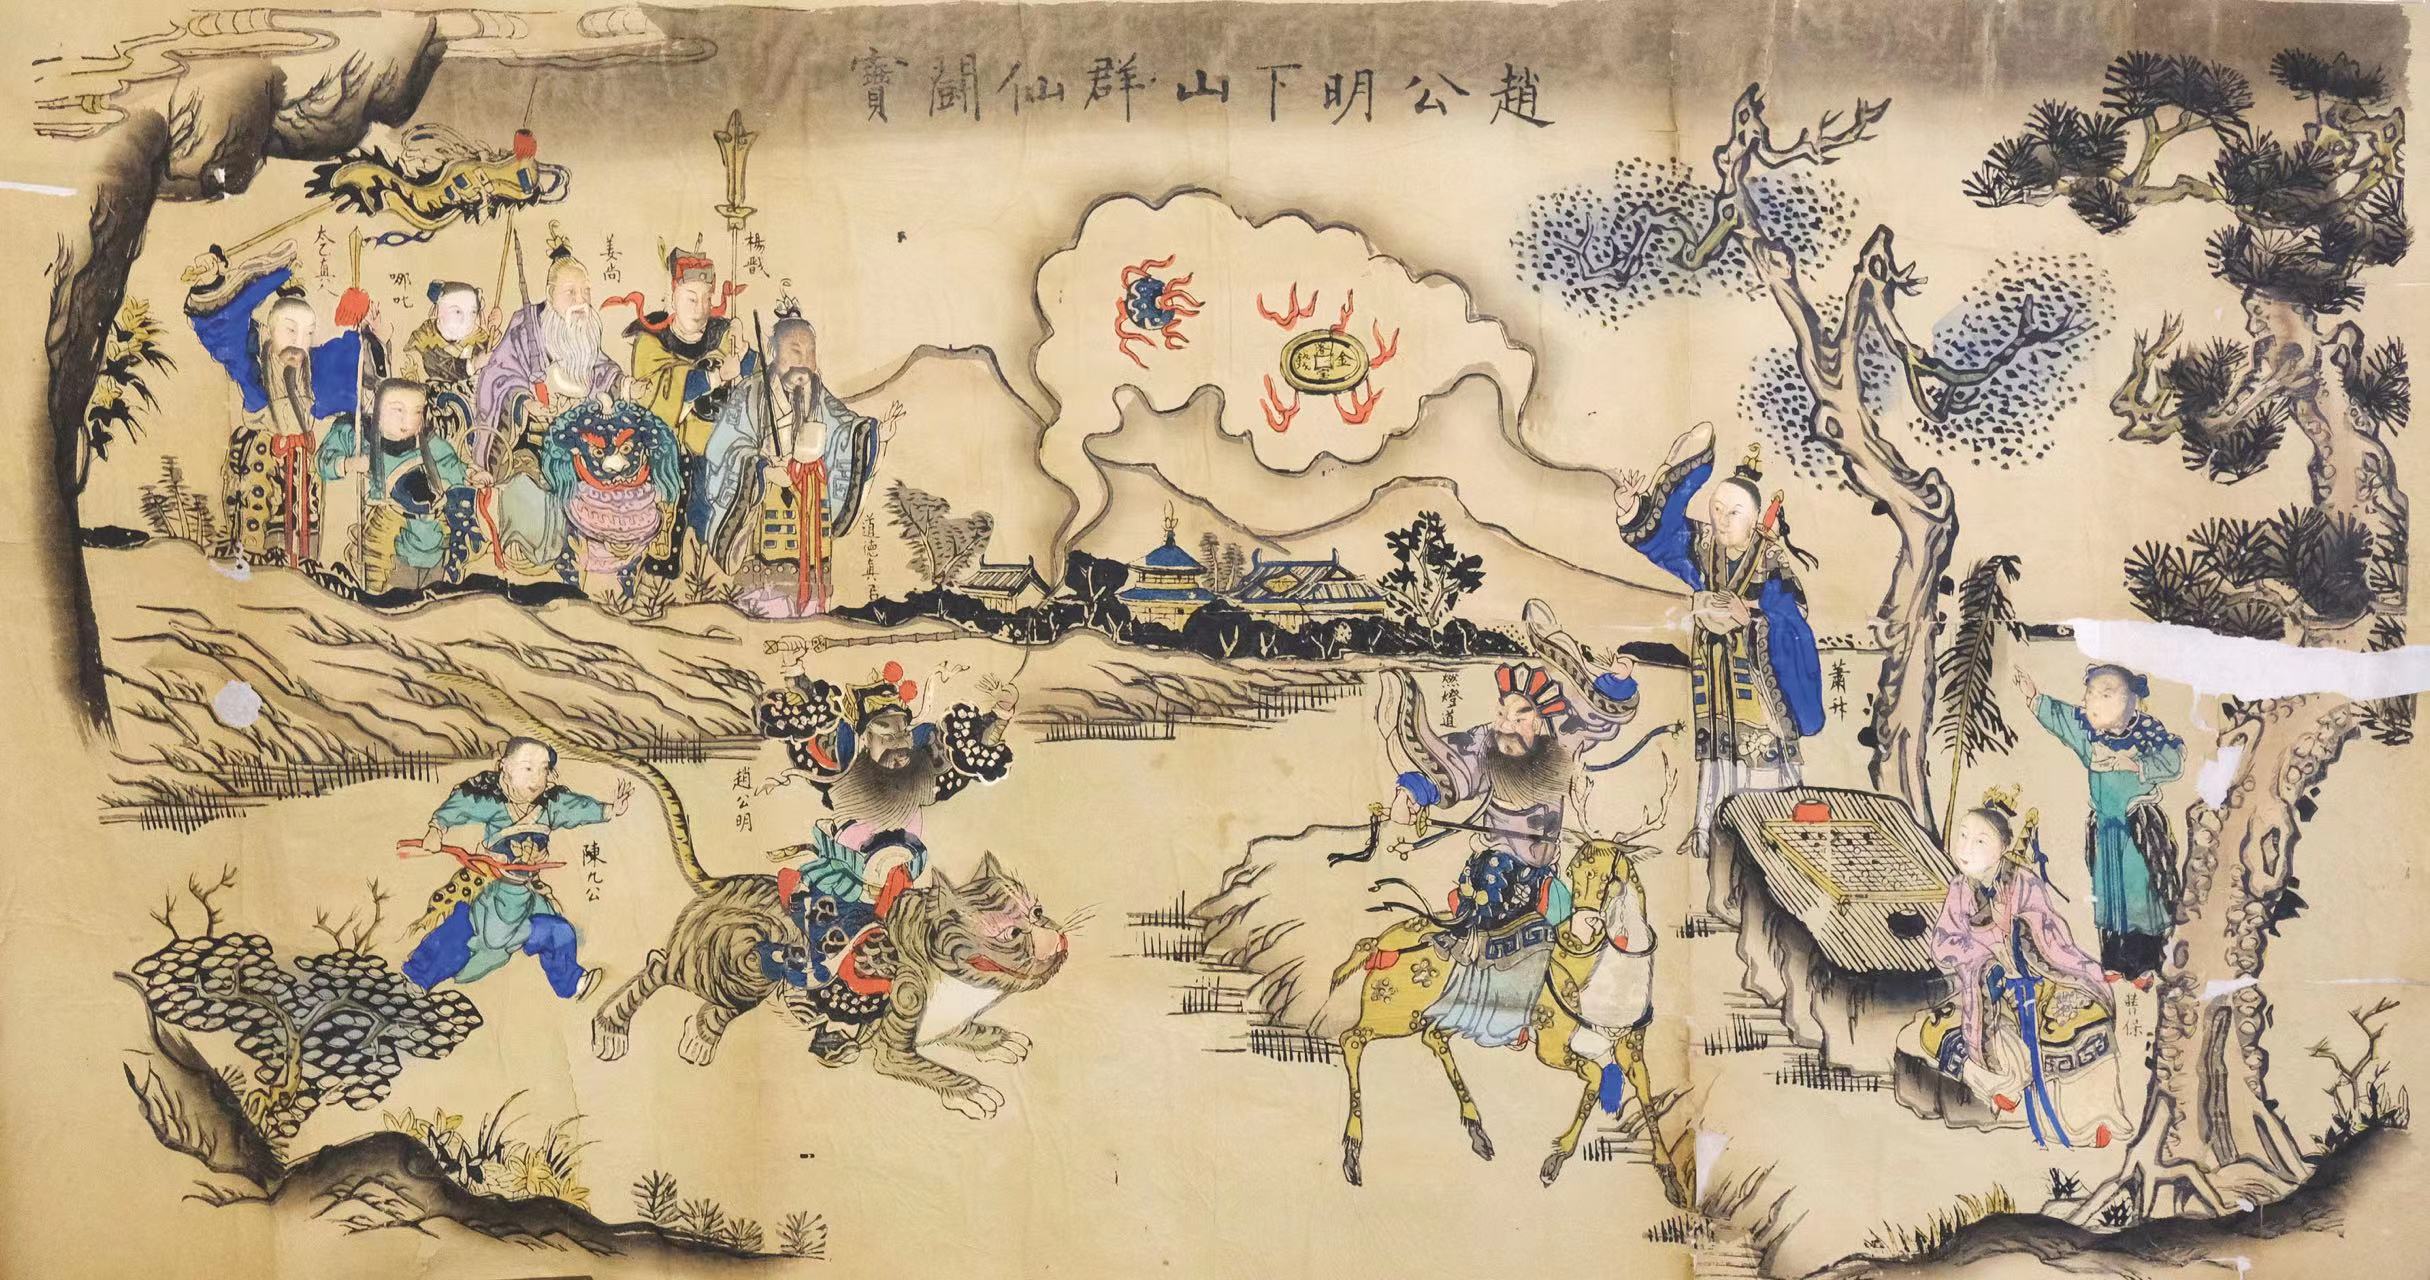 趙公明下山群仙鬪寶
太乙真人
哪吒
姜尚
楊戩
道德真君
落宝金錢
燃燈道
蕭升
趙公明
陳九公
曹保